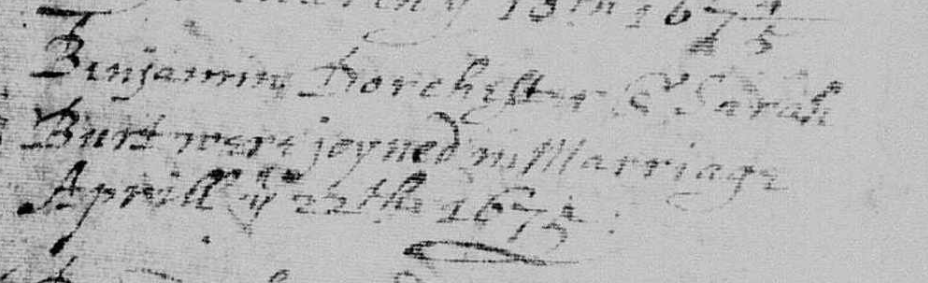 13th 167 4/5
Benjamin Dorchester & Sarah
Burt were joyned in Marriage
Aprill ye 22th 1675